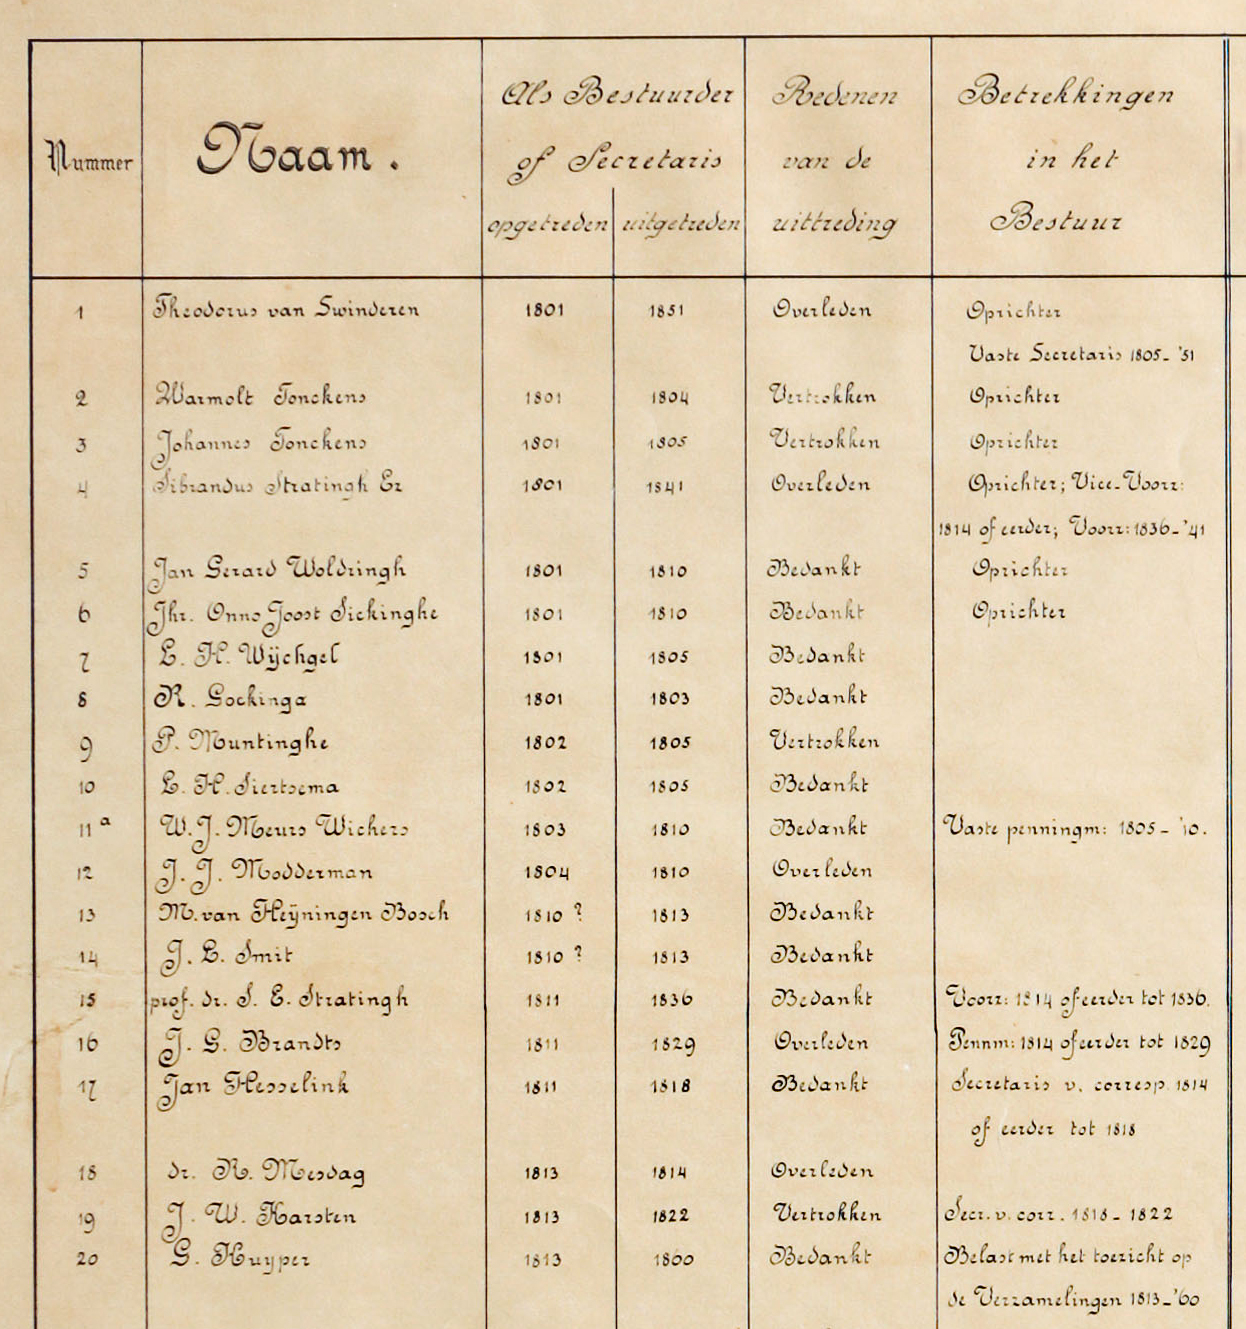 Nummer
Naam.
Als Bestuurder
of Secretaris
opgetreden uitgetreden
Redenen
van de
uittreding
Betrekkingen
in het
Bestuur
1 Theodorus van Swinderen 1801 1851 Overleden Oprichter
Vaste Secretaris 1805-'51
2 Warmolt Tonckens 1801 1804 Vertrokken Oprichter
3 Johannes Tonckens 1801 1805 Vertrokken Oprichter
4 Sibrandus Stratingh Ez 1801 1841 Overleden Oprichter; Vice-Voorz:
1814 of eerder; Voorz: 1836-'41
5 Jan Gerard Woldringh 1801 1810 Bedankt Oprichter
6 Jhr. Onno Joost Sickinghe 1801 1810 Bedankt Oprichter
7 E. H. Wÿchgel 1801 1805 Bedankt
8 R. Gockinga 1801 1803 Bedankt
9 P. Muntinghe 1802 1805 Vertrokken
10 E. H. Siertsema 1802 1805 Bedankt
11a W. J. Meurs Wichers 1803 1810 Bedankt Vaste penningm: 1805-'10.
12 J. J. Modderman 1804 1810 Overleden
13 M. van Heÿningen Bosch 1810 ? 1813 Bedankt
14 J. E. Smit 1810 ? 1813 Bedankt
15 prof. dr. S. E. Stratingh 1811 1836 Bedankt Voorz: 1814 of eerder tot 1836.
16 J. G. Brandts 1811 1829 Overleden Pennm: 1814 of eerder tot 1829
17 Jan Hesselink 1811 1818 Bedankt Secretaris v. corresp. 1814
of eerder tot 1818
18 dr. R. Mesdag 1813 1814 Overleden
19 J. W. Karsten 1813 1822 Vertrokken Secr. v. corr. 1818-1822
20 G. Kuyper 1813 1860 Bedankt Belast met het toezicht op
de Verzamelingen 1813-'60